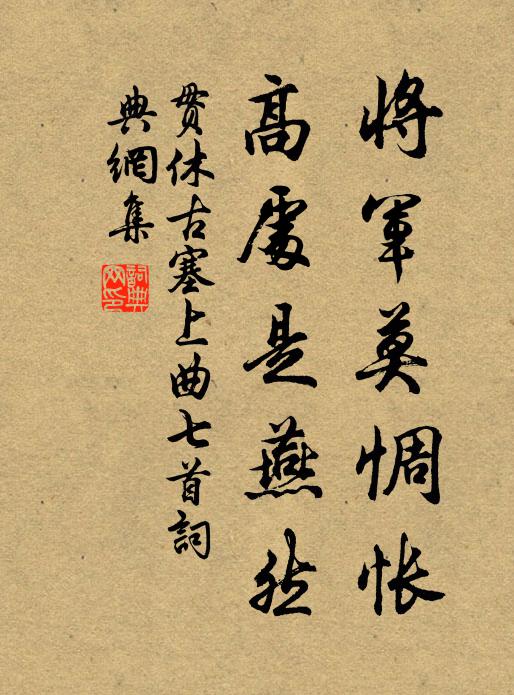 將軍莫惆悵
高處是燕然
貫休古塞上曲七首詞
典網集
詞典網印